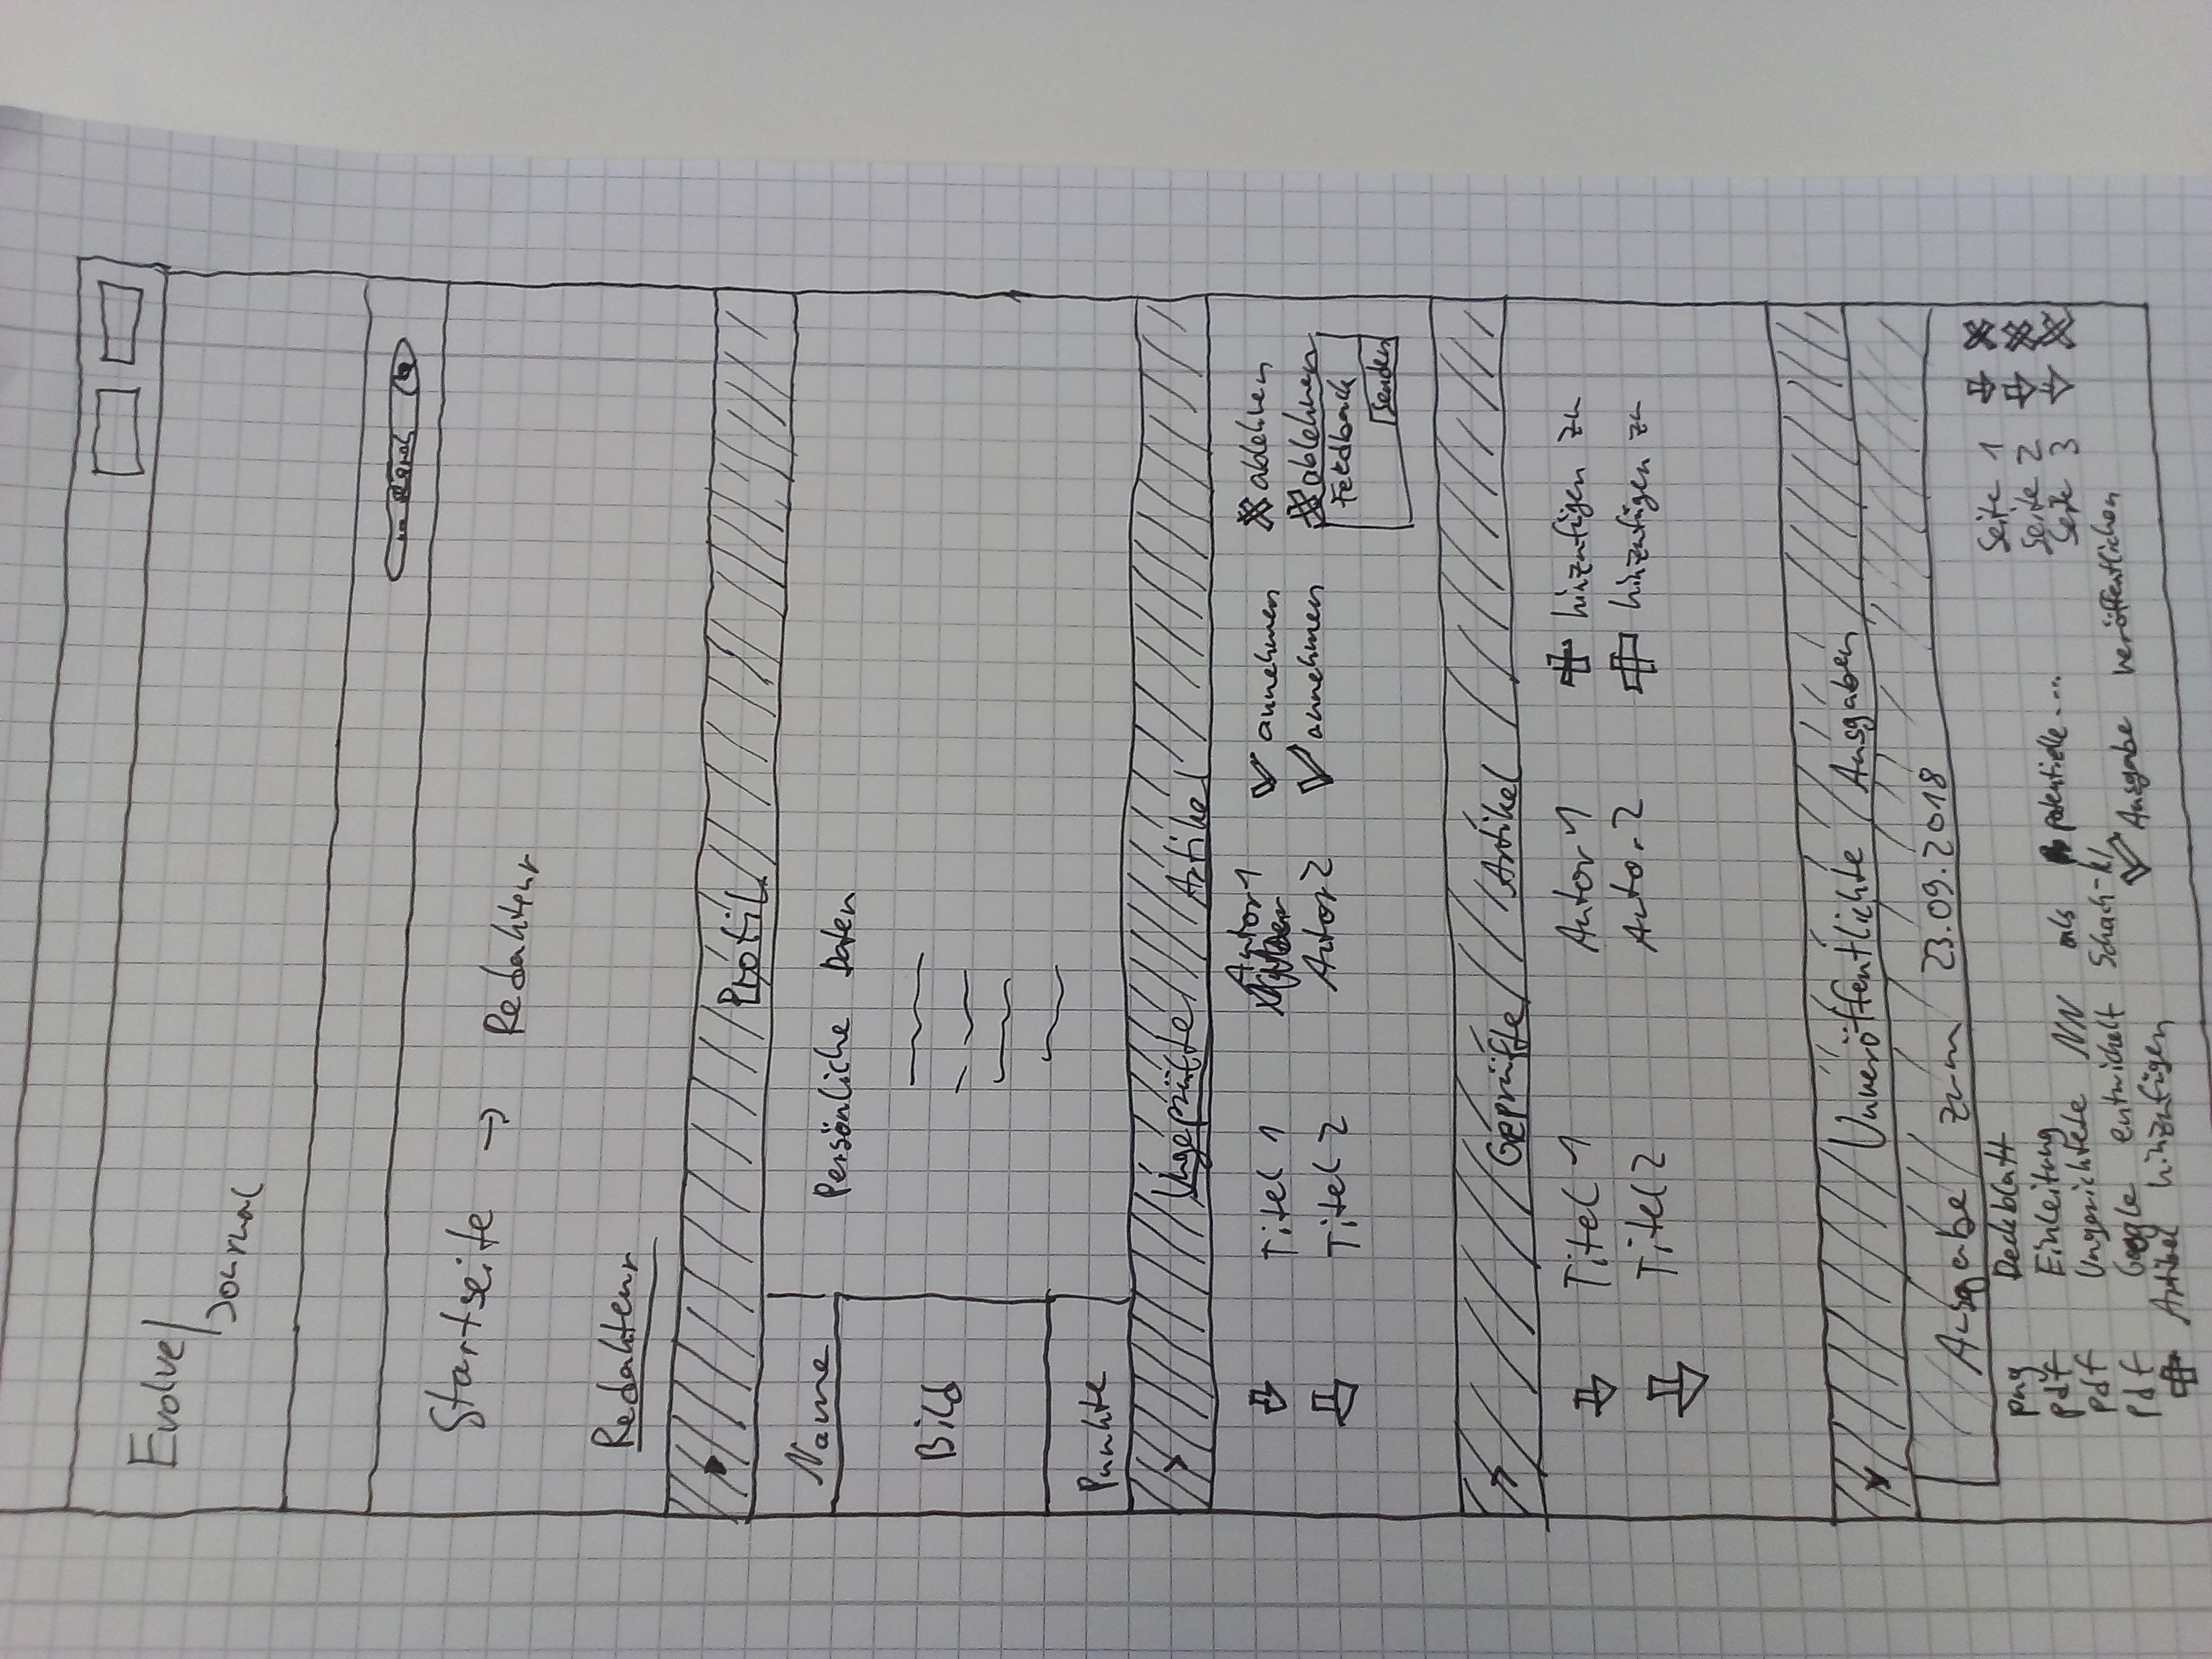 Evolve/
Journal
Startseite → Redakteur
Redakteur
Profil
Name
Persönliche Daten
Bild
Punkte
Ungeprüfte Artikel
Titel 1 Autor 1 annehmen ablehen
Titel 2 Autor 2 annehmen ablehnen
Feedback
senden
Geprüfte Artikel
Titel 1 Autor 1 hinzufügen zu
Titel 2 Autor 2 hinzufügen zu
Unveröffentlichte Ausgaben
Ausgabe zum 23.09.2018
png Deckblatt Seite 1
pdf Einleitung Seite 2
pdf Ungerichtete NN als potentielle.... Seite 3
pdf Google entwickelt Schach-KI
Artikel hinzufügen Ausgabe veröffentlichen